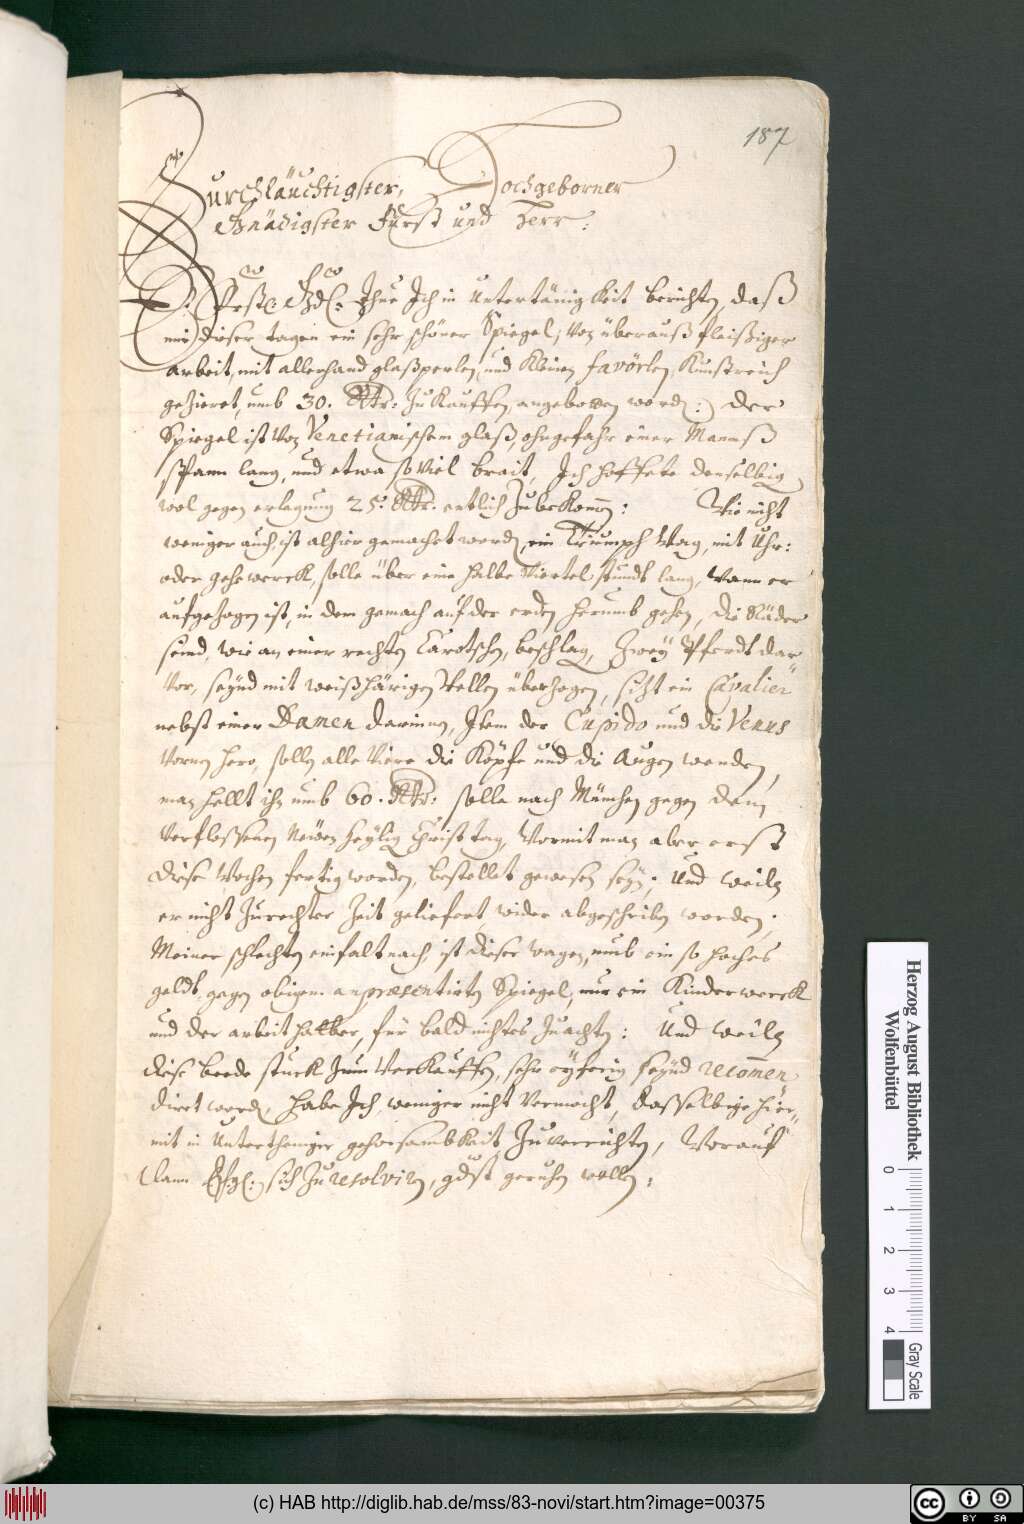 187
Durchläuchtigster, Hochgeborner
Gnädigster Fürst und Herr.
E. Frstl. Gdl: Thue Ich in Untertänigkeit berichten, daß
mir dieser tagen ein sehr schöner Spiegel, von überauß fleißiger
arbeit, mit allerhand glaßperlen, und kleinen favörlen, Kunstreich
gezieret, umb 30. Rtr: zu kauffen angebotten worden: der
Spiegel ist von Venetianischem glaß, ohngefahr einer Manns
spann lang, und etwa so viel brait, Ich hoffete denselbigen
wol gegen erlegung 25. Rtr. entlich zubekommen: Wie nicht
weniger auch, ist alhier gemachet worden, ein Triumph Wag, mit Uhr:
oder gehewerck, solle über eine halbe Viertel stundt lang, wann er
aufgezogen ist, in dem gemach auf der erden herumb gehen, die Räder
seind, wie an einer rechten Carotschen, beschlagen, Zwey Pferdt dar
vor, seynd mit weißhärigen Fellen überzogen, sitzt ein Cavalier
nebst einer Damen darinnen, Item der Cupido und die Venus
vornen hero, sollen alle Viere die Köpfe und die Augen wenden,
man hellt ihn umb 60. Rtr: solle nach München gegen dem
verflossenen Neüen Heylig Christ tag, Wormit man aber erst
diese Wochen fertig worden, bestellet gewesen seyn; Und weiln
er nicht zurechter Zeit geliefert wider abgeschriben worden;
Meiner schlechten einfalt nach ist dieser wagen, umb ein so hoches
geldt, gegen obigem anpræsentirten Spiegel, nur ein Kinderwerck
und der arbeit halber, für bald nichtes zuachten: Und weiln
diese beede stuck zum Verkauffen, sehr eyferig seynd recommen
dirt worden, habe Ich, weniger nicht vermocht, dasselbige hier
mit in Unterthäniger gehorsambkeit zu verrichten, Worauf
dann E. fgl: sich zu resolviren, gdst geruhen wollen;
Herzog August Bibliothek
Wolfenbüttel
0 1 2 3 4
Gray Scale
(c) HAB http://diglib.hab.de/mss/83-novi/start.htm?image=00375
cc BY SA